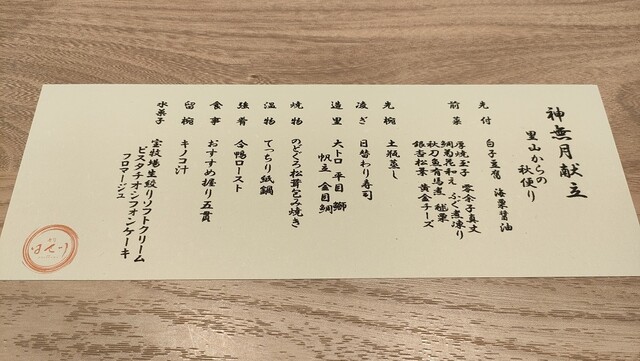 神無月献立
里山からの
秋便り
先付
白子豆腐 海栗醤油
前菜
厚焼玉子 零余子真丈
鯛菊花和え ふぐ煮凍り
秋刀魚有馬煮 毬栗
銀杏松葉 黄金チーズ
先椀
土瓶蒸し
凌ぎ
日替わり寿司
造里
大トロ 平目 鰤
帆立 金目鯛
焼物
のどぐろ松茸包み焼き
温物
てっちり紙鍋
強肴
合鴨ロースト
食事
おすすめ握り五貫
留椀
キノコ汁
水菓子
宝牧場生絞りソフトクリーム
ピスタチオシフォンケーキ
フロマージュ